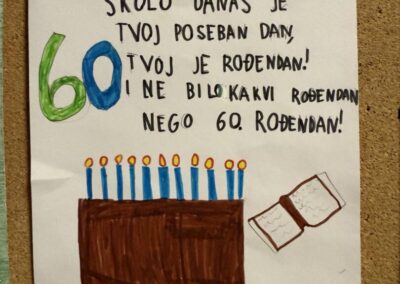 ŠKOLO DANAS JE
TVOJ POSEBAN DAN,
60 TVOJ JE ROĐENDAN!
I NE BILO KAKVI ROĐENDAN
NEGO 60. ROĐENDAN!